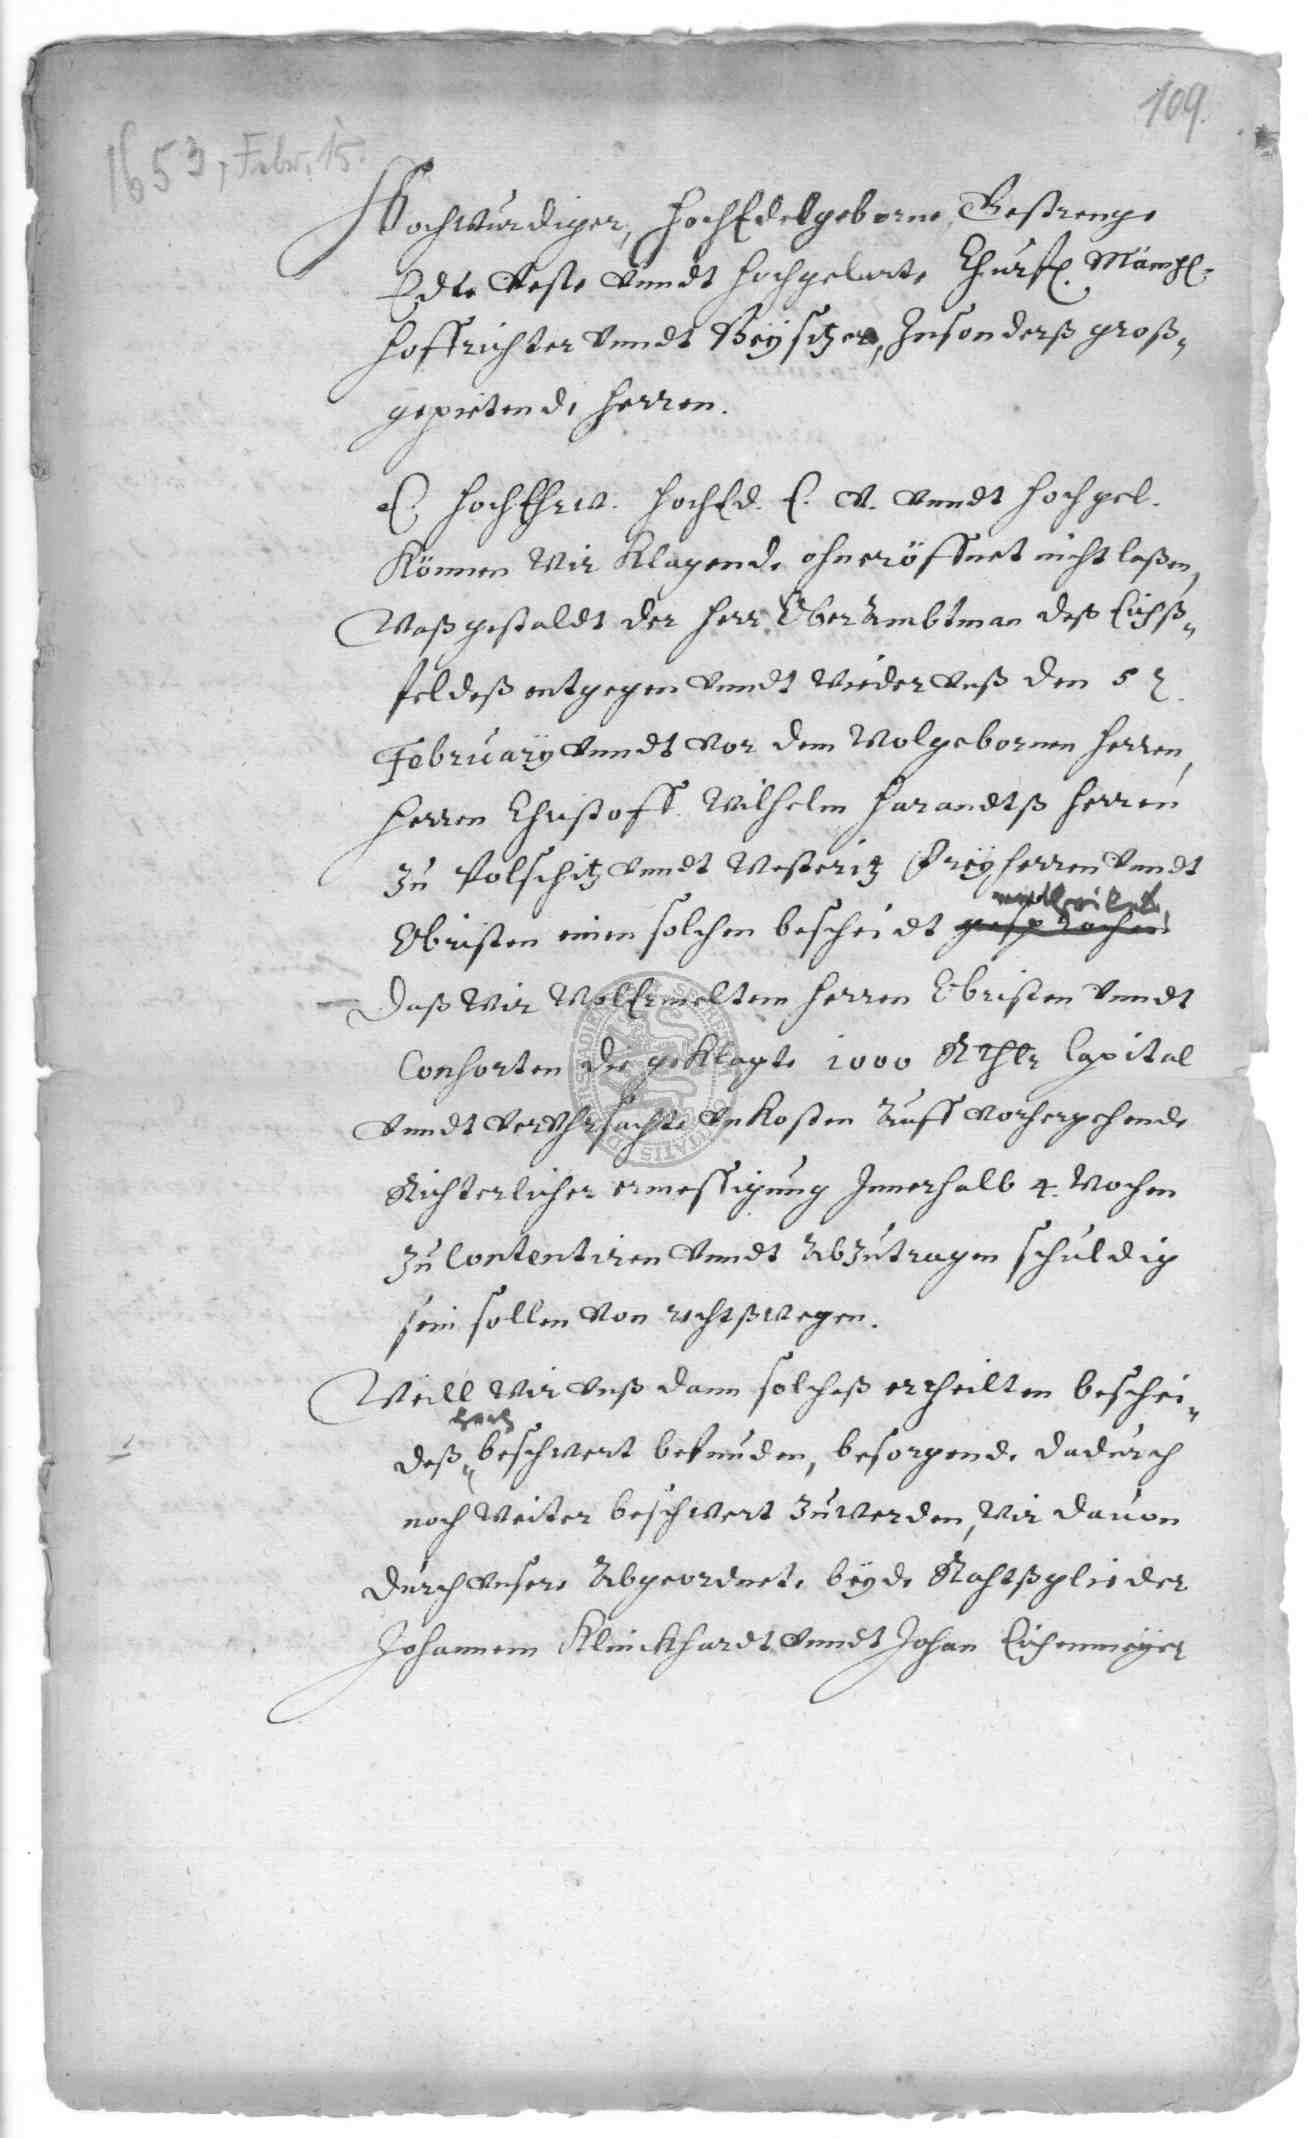 109.
1653, Febr. 15.
Hochwürdiger, HochEdelgeborne, Gestrenge
Edle Veste vnndt hochgelarte Churfl. Mäintzl.
Hoffrichter vnndt Beÿsitzer, Insonderß groß„
gepietende Herren.
E. HochEhrw. HochEd. E. V. vnndt hochgel.
Können Wir Klagende ohneröffnet nicht laßen,
Waßgestaldt der Herr OberAmbtman deß Eichß„
feldeß entgegen vnndt wieder vnß den 5
Februarÿ vnndt vor dem Wolgebornen Herren,
Herren Christoff Wilhelm Harandtß Herren
zu Polschitz vnndt Westeritz Freÿherren vnndt
Obristen einen solchen bescheidt gesprochen
Daß Wir WolErmeltem Herren Obristen vnndt
Consorten die geklagte 1000 Rthlr Capital
vnndt verVhrsachte vnkosten Auff vorhergehende
Richterlicher ermessigung Innerhalb 4. Wochen
zu Contentiren vnndt Abzutragen schuldig
sein sollen von rechtßwegen.
Weill Wir vnß dann solcheß ertheilten beschei„
deß hoch beschwert befunden, besorgende dadurch
noch Weiter beschwert zuwerden, Wir dauon
durch vnsere Abgeordnete beÿde Rahtßglieder
Johannem Klinckhardt vnndt Johan Eichenmeÿer